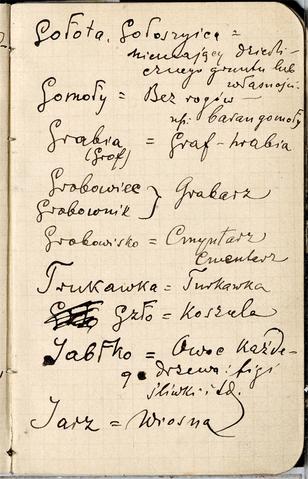 Gołota, Gołoszyjca =
niemający dziedzi
cznego gruntu lub
własności.
Gomoły = Bez rogów
np: baran gomoły
Grabia = Graf-hrabia
(Grof)
Grabowiec } Grabarz
Grabownik
Grabowisko = Cmyntarz
Cmentarz
Trukawka = Turkawka
Gzło = Koszula
Jabłko = Owoc każde-
go drzewa: figi
śliwki i td.
Jarz = Wiosna